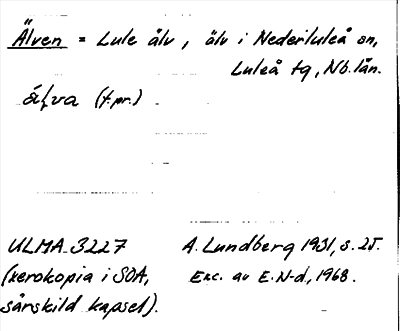 Älven = Lule älv, älv i Nederluleå sn,
Luleå tg, Nb. län.
(t.pr.)
ULMA 3227
(xerokopia i SOA,
särskild kapsel).
A. Lundberg 1931, s. 25.
Exc. av E. N-d, 1968.